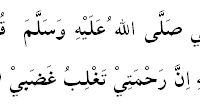 صَلَّى الله ُعَلَيْهِ وَسَلَّمَ
اِنَّ رَحْمَتِيْ تَغْلِبُ غَضَبَيْ